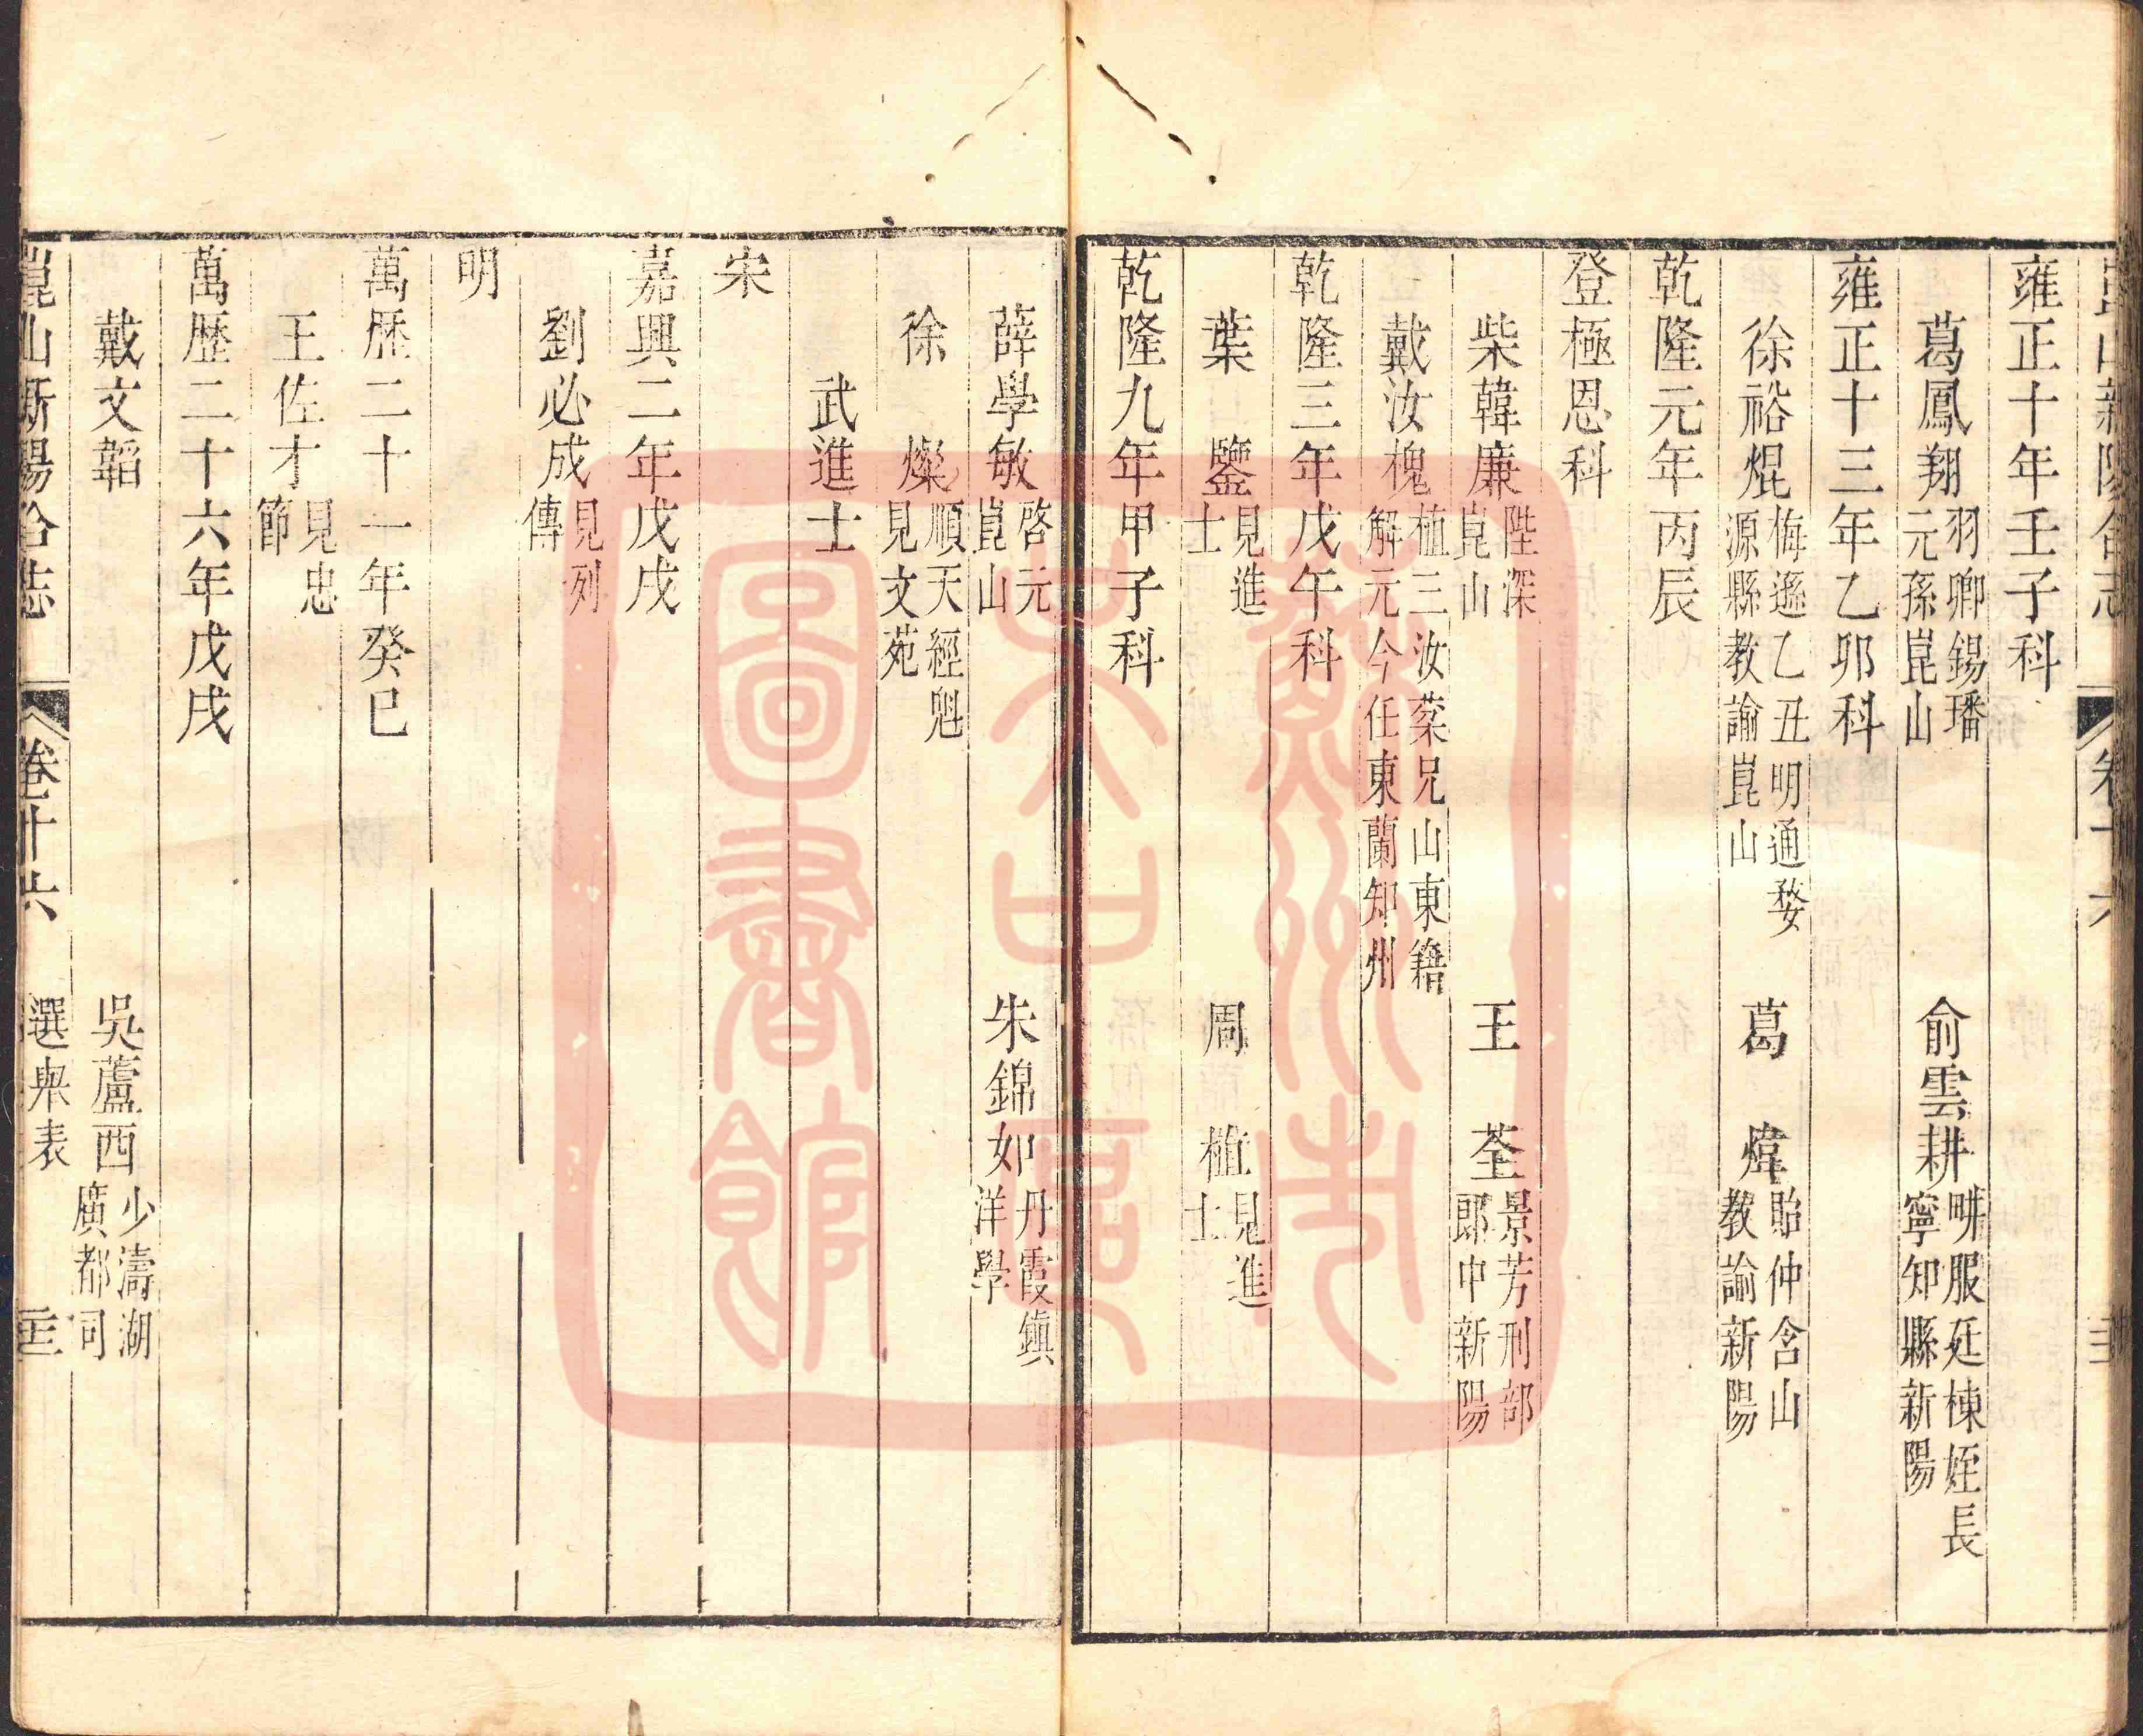 崑山新陽合志 卷十六
雍正十年壬子科
葛鳳翔 羽卿錫璠元孫崑山 俞雲耕 畊服延棟姪長寧知縣新陽
雍正十三年乙卯科
徐裕焜 梅遜乙丑明通婺源縣教諭崑山 葛煒 貽仲含山教諭新陽
乾隆元年丙辰
登極恩科
柴韓廉 陛深崑山 王荃 景芳刑部郎中新陽
戴汝槐 植三汝棻兄山東籍解元今任東蘭知州
乾隆三年戊午科
葉鑒 見進士 周植 見進士
乾隆九年甲子科
薛學敏 啓元崑山 朱錦如 丹霞鎮洋學
徐燦 順天經魁見文苑
武進士
宋
嘉興二年戊戌
劉必成 見列傳
明
萬歷二十一年癸巳
王佐才 見忠節
萬歷二十六年戊戌
戴文韜 吳蘆西 少濤湖廣都司
崑山新陽合志 卷十六 選舉表
蘇州市
圖書館